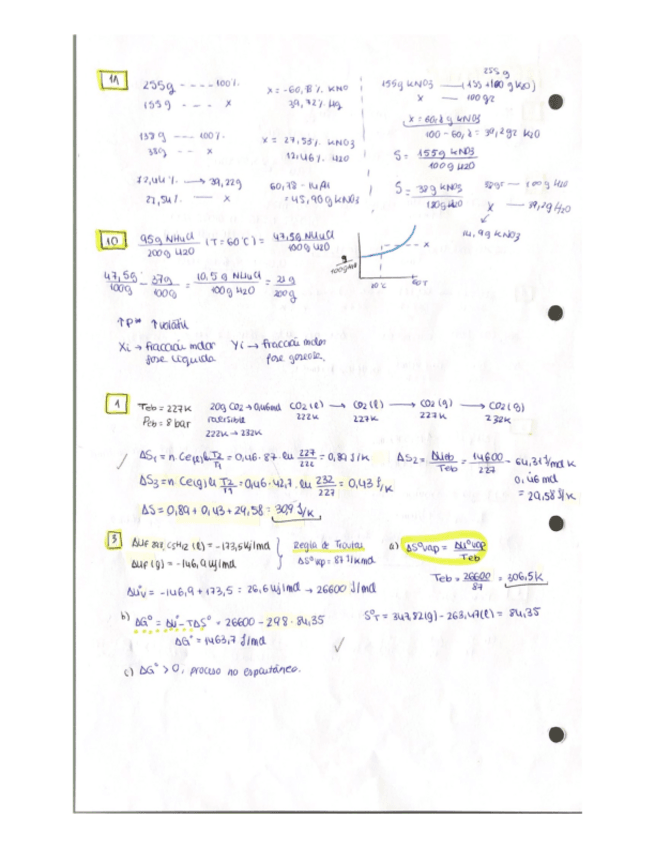 11
255g ---- 100%
155g --- x
x = -60,8% KNO
39,22% Hg
155g KNO3 — (155+100g H2O)
255g
x — 100g
x = 60,8 g KNO3
100 - 60,8 = 39,2g2 H2O
138g --- 100%.
38g -- x
x = 27,53% KNO3
S = 155g KNO3 / 100g H2O
→ 39,22g
— x
= 45,90g KNO3
S = 38g KNO3 / 100g H2O
38gr — 100g H2O
x — 39,2g H2O
14,9g KNO3
10
95g NH4Cl / 200g H2O (T=60°C) = 47,5g NH4Cl / 100g H2O
47,5g / 100g - 37g / 100g = 10,5g NH4Cl / 100g H2O = 21g / 200g
g / 100g H2O
x
↑P** ↑volátil
Xi → fracción molar fase líquida
Yi → fracción molar fase gaseosa.
1
Teb = 227K
20g CO2 → 0,46mol
CO2(l) → CO2(l) → CO2(g) → CO2(g)
222K 227K 227K 232K
Peb = 8 bar
reversible
222K → 232K
ΔS1 = n Ce(l) ln T2/T1 = 0,46·87 ln 227/222 = 0,89 J/K
ΔS2 = ΔHeb/Teb = 14600/227 = 64,31 J/mol K
0,46 mol
= 29,58 J/K
ΔS3 = n Ce(g) ln T2/T1 = 0,46·42,7·ln 232/227 = 0,43 J/K
ΔS = 0,89 + 0,43 + 29,58 = 30,9 J/K
3
ΔHf 298, C5H12 (l) = -173,5 kJ/mol
ΔHf (g) = -146,9 kJ/mol
Regla de Trouton
ΔS°vap = 87 J/Kmol
a) ΔS°vap = ΔH°vap / Teb
Teb = 26600/87 = 306,5K
ΔH°v = -146,9 + 173,5 = 26,6 kJ/mol → 26600 J/mol
b) ΔG° = ΔH° - TΔS° = 26600 - 298·84,35
S°T = 347,82(g) - 263,47(l) = 84,35
ΔG° = 1463,7 J/mol
c) ΔG° > 0, proceso no espontáneo.